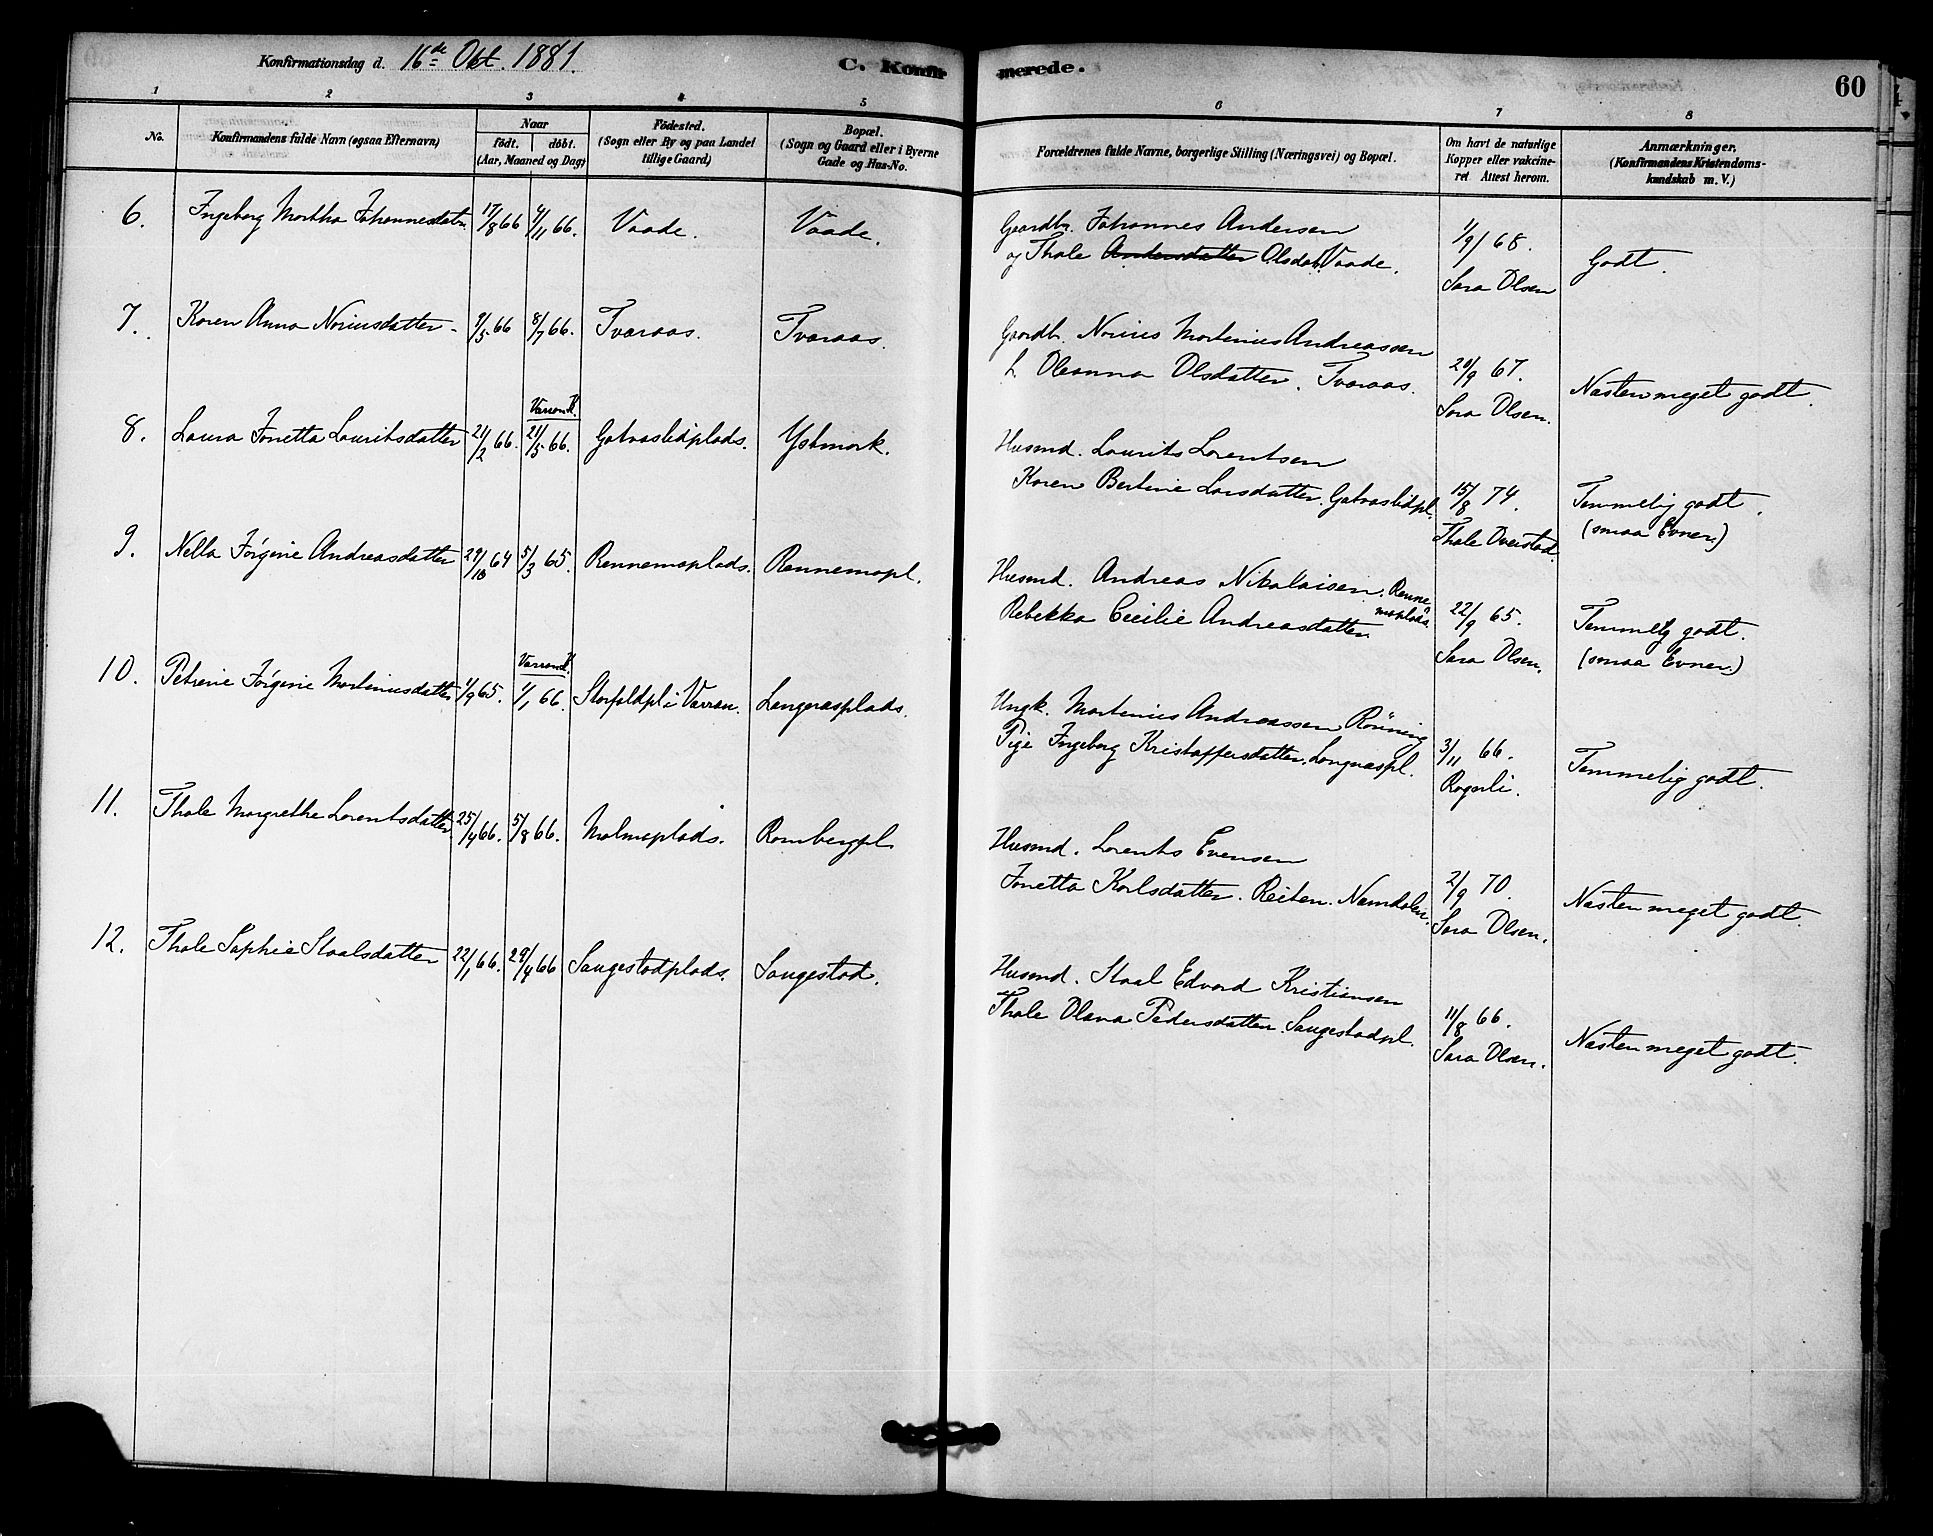 Konfirmationsdag d. 16de Okt. 1881. C. Konfirmerede. 60
1 2 3 4 5 6 7 8
No. Konfirmandens fulde Navn (ogsaa Efternavn) Naar født. døbt. (Aar, Maaned og Dag) Fødested. (Sogn eller By og paa Landet tillige Gaard) Bopæl. (Sogn og Gaard eller i Byerne Gade og Hus-No. Forældrenes fulde Navne, borgerlige Stilling (Næringsvei) og Bopæl. Om havt de naturlige Kopper eller vakcineret Attest herom. Anmærkninger. (Konfirmandens Kristendomskundskab m. V.)
6. Ingeborg Martha Johannesdatr. 17/8 66 4/11 66. Vaade. Vaade. Gaardbr. Johannes Andersen 1/9 68.
og Thale Andersdatter Olsdat. Vaade. Sara Olsen Godt.
7. Karen Anna Noriusdatter 9/5 66 8/7 66. Tvaraas. Tvaraas. Gaardbr. Norius Martinius Andreassen 20/9 67.
L. Oleanna Olsdatter. Tvaraas. Sara Olsen. Næsten meget godt.
Værran K.
8. Laura Jonetta Lauritsdatter 21/2 66. 21/5 66. Gotvaslidplads. Ystmark. Husmd. Laurits Lorentsen
Karen Bertine Larsdatter. Gotvaslidpl. 15/8 74. Temmelig godt.
Thale Overstad. (smaa Evner.)
9. Nella Jørgine Andreasdatter 29/10 64 5/3 65. Rennemaplads. Rennemapl. Husmd. Andreas Nikolaisen. Rennemaplads.
Rebekka Cecilie Andreasdatter 22/9 65. Temmelig godt.
Sara Olsen. (smaa Evner.)
Værran K.
10. Petrine Jørgine Martiniusdatter 1/9 65. 1/1 66. Storfoldpl. i Værran. Langnæsplads. Ungk. Martinius Andreassen Rønning
Pige Ingeborg Kristoffersdatter. Langnæspl. 3/11 66. Temmelig godt.
Ragnli.
11. Thale Margrethe Lorentsdatter 25/4 66. 5/8 66. Malmaplads. Rambergpl. Husmd. Lorents Evensen
Jonetta Karlsdatter. Reiten. Namdalen. 2/9 70. Næsten meget godt.
Sara Olsen.
12. Thale Sophie Staalsdatter 22/1 66. 29/4 66 Saugestadplads. Saugestad. Husmd. Staal Edvard Kristiansen
Thale Olava Pedersdatter. Saugestadpl. 11/8 66. Næsten meget godt.
Sara Olsen.